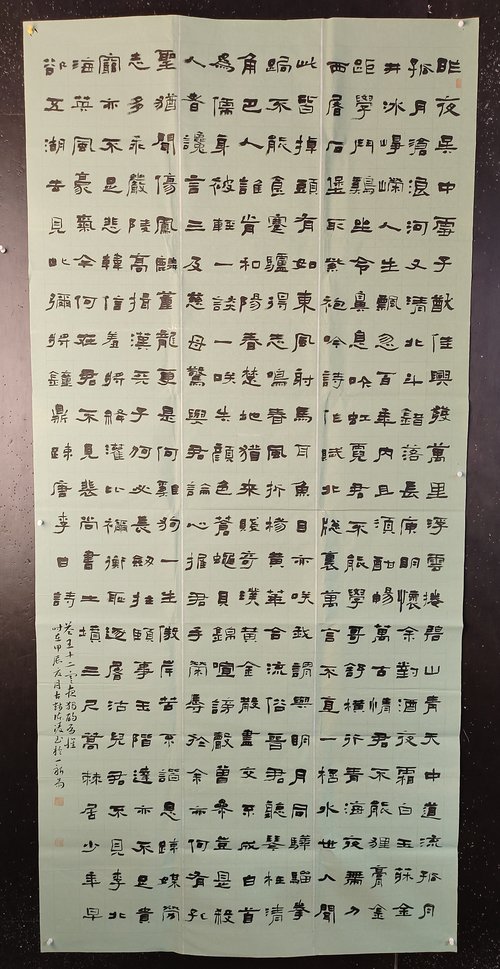 昨夜吳中雪子猷佳興發萬里浮雲捲碧山青天中道流孤月
孤月滄浪河又清北斗錯落長庚明懷余對酒夜霜白玉牀金
井冰崢嶸人生飄忽百年內且須酣暢萬古情君不能狸膏金
距學鬥雞坐令鼻息吹虹霓君不能學哥舒橫行青海夜帶刀
西屠石堡取紫袍吟詩作賦北窗裏萬言不直一杯水世人聞
此皆掉頭有如東風射馬耳魚目亦笑我謂與明月同驊騮拳
跼不能食蹇驢得志鳴春風折楊黃華合流俗晉君聽琴枉清
角巴人誰肯和陽春楚地猶來賤奇璞黃金散盡交不成白首
為儒身被輕一談一笑失顏色蒼蠅貝錦喧謗聲曾參豈是殺
人者讒言三及慈母驚與君論心握君手榮辱於余亦何有孔
聖猶聞傷鳳麟董龍更是何雞狗一生傲岸苦不諧恩疎媒勞
志多乖嚴陵高揖漢天子何必長劍拄頤事玉階達亦不足貴
窮亦不足悲韓信羞將絳灌比禰衡恥逐屠沽兒君不見李北
海英風豪氣今何在君不見裴尚書土墳三尺蒿棘居少年早
欲五湖去見此彌將鐘鼎疎唐李白詩
答王十二寒夜獨酌有懷
時在甲辰